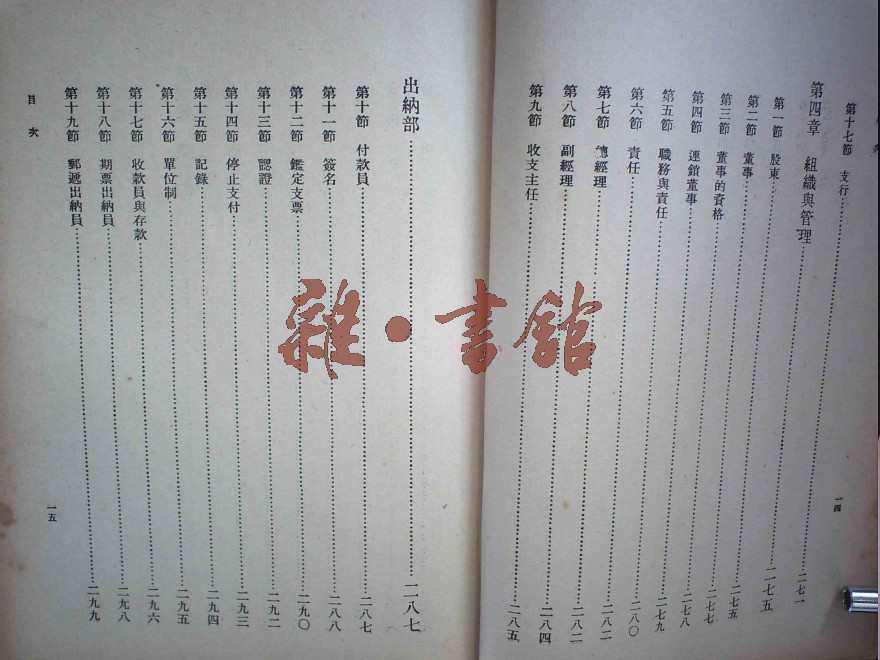 第十七節 支行
第四章 組織與管理 二七一
第一節 股東 二七五
第二節 董事 二七五
第三節 董事的資格 二七七
第四節 連鎖董事 二七八
第五節 職務與責任 二七九
第六節 責任 二八〇
第七節 總經理 二八二
第八節 副經理 二八二
二八四
第九節 收支主任 二八五
一四
出納部 二八七
第十節 付款員 二八七
第十一節 簽名 二八八
第十二節 鑑定支票 二九〇
第十三節 認證 二九二
第十四節 停止支付 二九三
第十五節 記錄 二九四
第十六節 單位制 二九五
第十七節 收款員與存款 二九六
第十八節 期票出納員 二九八
第十九節 郵遞出納員 二九九
目次
一五
雜·書館